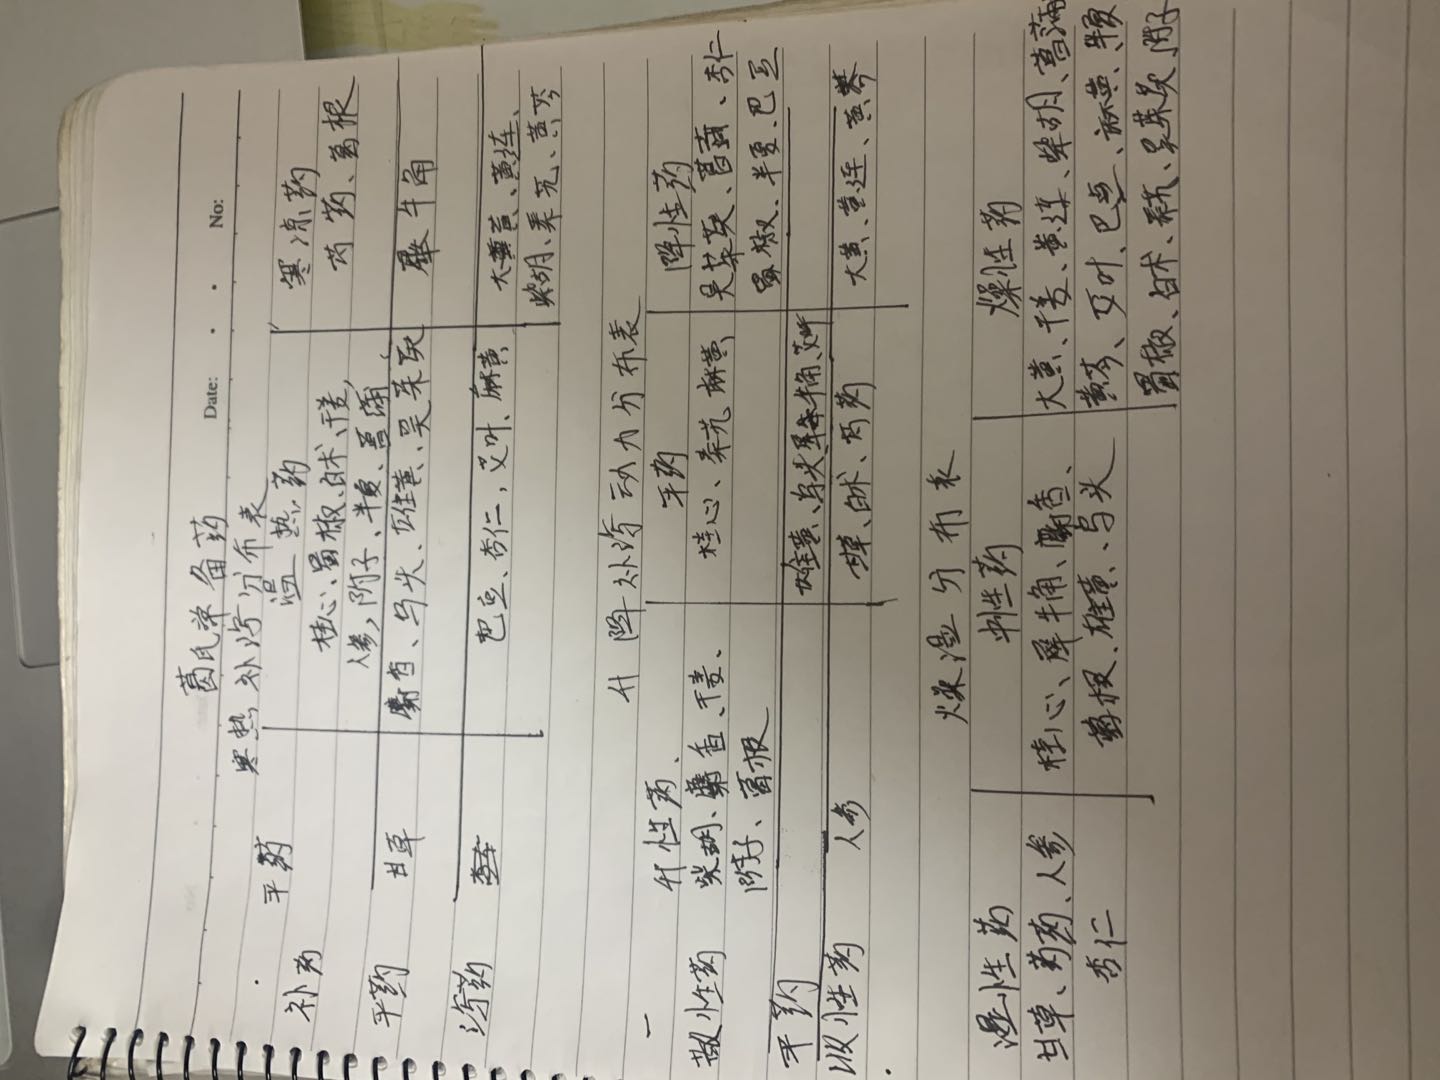 Date: No:
葛氏常备药
寒热补泻分布表
平药 温热药 寒凉药
补药 桂心、蜀椒、白术、干姜、 芍药、葛根
人参、附子、半夏、菖蒲、
平药 甘草 麝香、乌头、雄黄、吴茱萸 犀牛角
泻药 巴豆、杏仁、艾叶、麻黄 大黄、黄连、
柴胡、荛花、黄芩
升降补泻动力分布表
升性药、 平药 降性药
散性药 柴胡、麝香、干姜、 桂心、荛花 麻黄 吴茱萸、菖蒲、杏仁
附子、葛根 蜀椒、半夏、巴豆
平药 雄黄、乌头 犀牛角、艾叶
收性药 人参 甘草、白术、芍药 大黄、黄连、黄芩
燥湿分布表
湿性药 中性药 燥性药
甘草、芍药、人参 桂心、犀牛角、麝香、 大黄、干姜、黄连、柴胡、菖蒲
杏仁 葛根、雄黄、乌头 黄芩、艾叶、巴豆、麻黄、半夏
蜀椒、白术、荛花、吴茱萸 附子